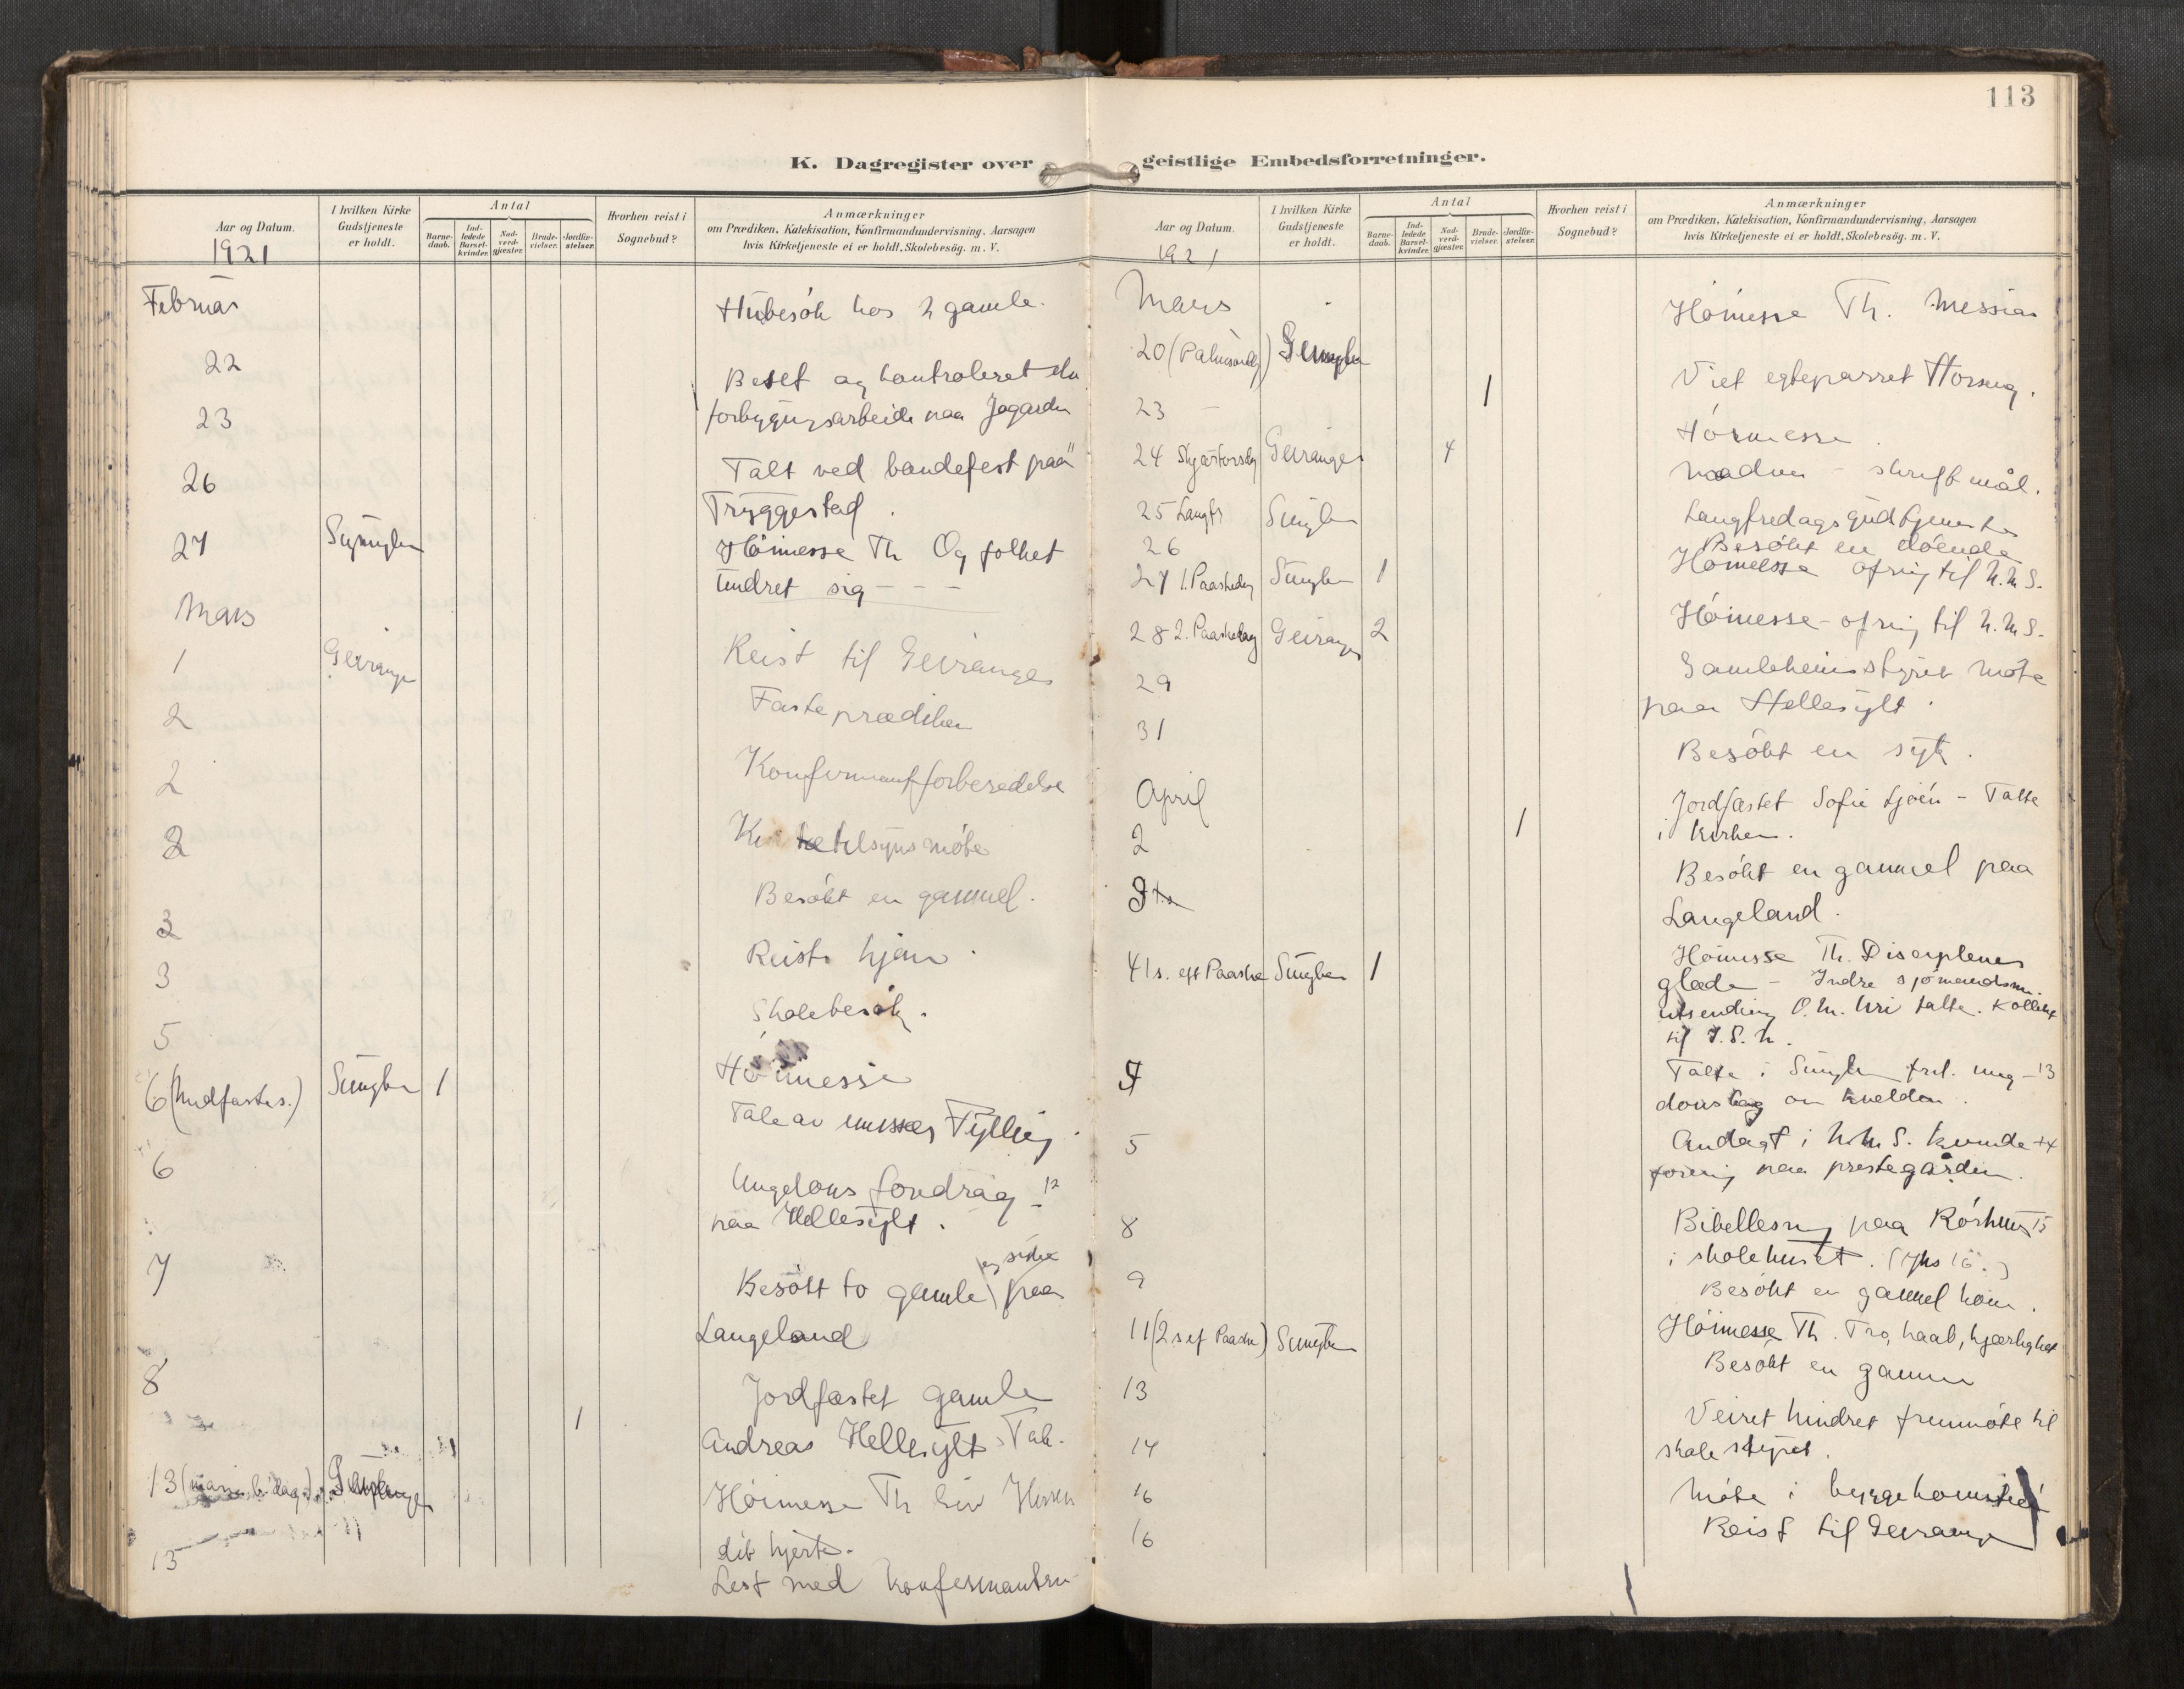 113
K. Dagregister over geistlige Embedsforretninger.
Aar og Datum.
1921
I hvilken Kirke Gudstjeneste er holdt.
Antal
Barne-daab.
Ind-ledede Barsel-kvinder.
Nad-verd-gjæster.
Brude-vielser.
Jordfæ-stelser.
Hvorhen reist i Sognebud?
Anmærkninger
om Prædiken, Katekisation, Konfirmandundervisning, Aarsagen
hvis Kirketjeneste ei er holdt, Skolebesøg. m. V.
Februar
Husbesök hos 2 gamle.
22
Beset og kontroleret
23 forbygningsarbeide paa
26 Talt ved bandefest paa
Tryggestad.
27 Sunnylven Höimesse Th Og folket
undret sig - - -
Mars
1 Geiranger Reist til Geiranger
2 Fasteprædiken
2 Konfirmantforberedelse
2 tilsynsmöte
Besökt en gammel.
3
Reist hjem.
3
Skolebesök.
5
Höimesse
6 (Midfastes.) Sunnylven 1
Tale av Fylling
6
Ungdoms foredrag 12
paa Hellesylt.
7
Besökt to gamle og syke paa
Langeland
8
Jordfæstet gamle
1
Andreas Hellesylt - Tale.
13 (Marie b. dag) Geiranger Höimesse Th Giv Herren
dit hjerte.
13
Lest med konfirmanten
Aar og Datum.
1921
I hvilken Kirke Gudstjeneste er holdt.
Antal
Barne-daab.
Ind-ledede Barsel-kvinder.
Nad-verd-gjæster.
Brude-vielser.
Jordfæ-stelser.
Hvorhen reist i Sognebud?
Anmærkninger
om Prædiken, Katekisation, Konfirmandundervisning, Aarsagen
hvis Kirketjeneste ei er holdt, Skolebesøg. m. V.
Mars
Höimesse Th. Messias
20 (Palmesöndag) Sunnylven
Viet egteparret
23 1
Höimesse.
24 Skjærtorsdag Geiranger 4
- skriftmål.
25 Langfr Sunnylven Langfredagsgudstjeneste
26 Besökt en döende
27 1. Paaskedag Sunnylven 1 Höimesse ofring til N.M.S.
28 2. Paaskedag Geiranger 2 Höimesse - ofring til N.M.S.
29 Gamleheimsstyret möte
paa Hellesylt.
31
Besökt en syk.
April
Jordfæstet Sofie Ljöen - Talte
2 1 i kirken.
Besökt en gammel paa
Langeland.
4 1 s. eft Paaske Sunnylven 1 Höimesse Th. Disciplenes
glæde - Indre sjömandsm.
utsending O. M. Uri talte. Kollekt
til I.S.M.
Talte i Sunnylven fril. ung- 13
domslag om kvelden.
5
Andagt i N.M.S. kvinde- 14
forening paa prestegården.
8
Bibellesning paa Rörhus 15
i skolehuset. (Jhs 15.)
9
Besökt en gammel kone.
11 (2 s ef Paaske) Sunnylven Höimesse Th. Tro, haab, kjærlighet
Besökt en gammel
13
Veiret hindret fremmöte til
14 skolestyret.
16 Möte i byggekomiteen
16 Reist til Geiranger